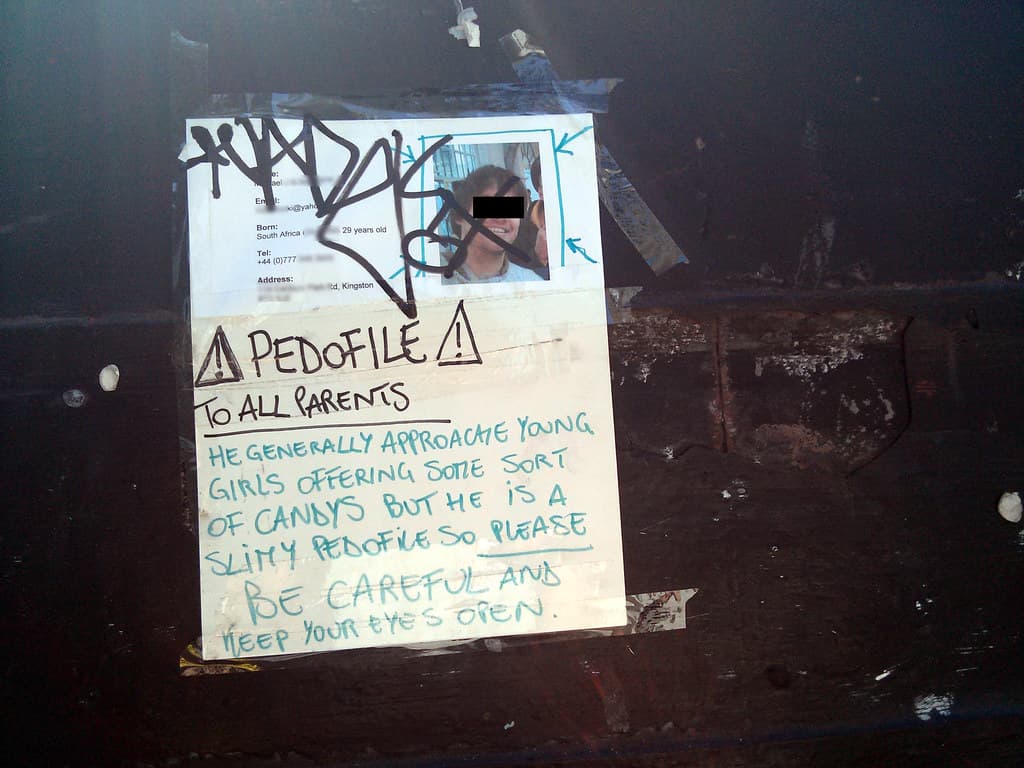 Born:
South Africa 29 years old
Tel:
+44 (0)777
Address:
Rd, Kingston
PEDOFILE
TO ALL PARENTS
HE GENERALLY APPROACHE YOUNG
GIRLS OFFERING SOME SORT
OF CANDYS BUT HE IS A
SLIMY PEDOFILE SO PLEASE
BE CAREFUL AND
KEEP YOUR EYES OPEN.